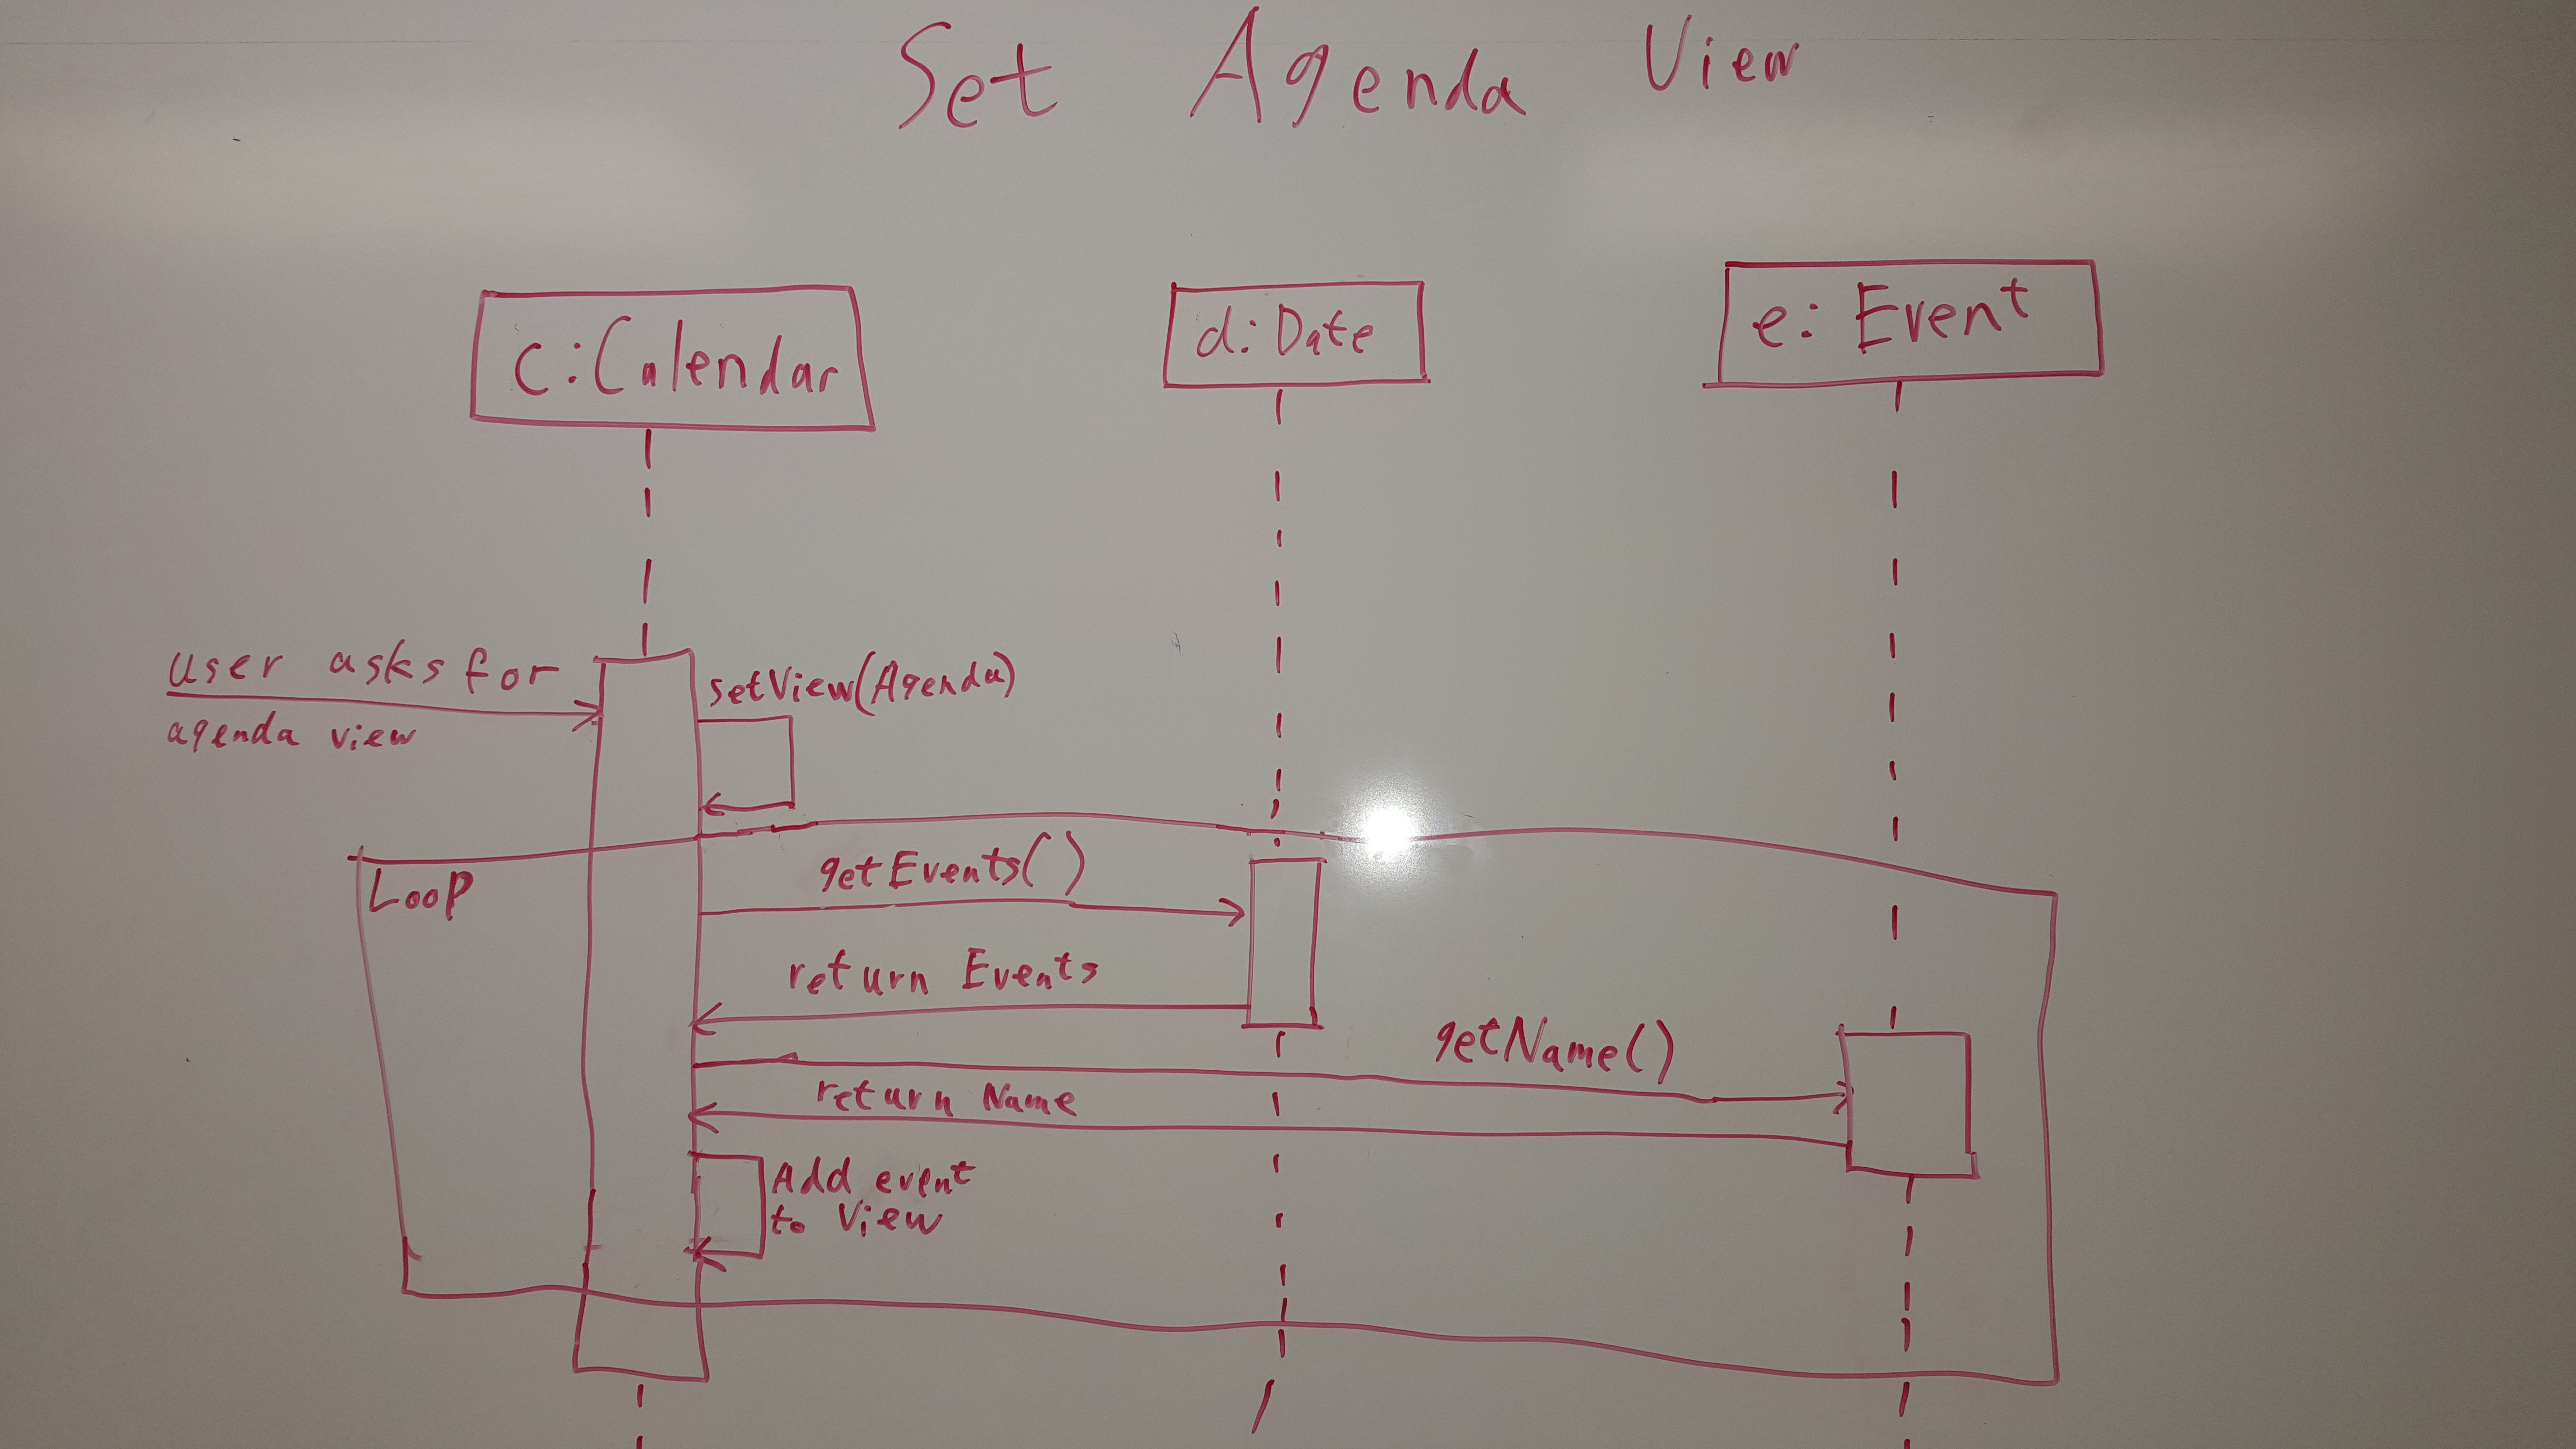 Set Agenda View
c:Calendar
d:Date
e: Event
user asks for
agenda view
setView(Agenda)
Loop
getEvents()
return Events
getName()
return Name
Add event
to View